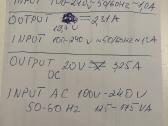 INPUT 100-240V 50/60Hz ~ 1,0A
OUTPUT ⎓ 2,31A
19,5V
INPUT 100-240V ~ 50/60Hz ~ 1,5A
OUTPUT 20V ⎓ 3,25A
DC
INPUT AC 100V-240V
50-60Hz 125-175VA